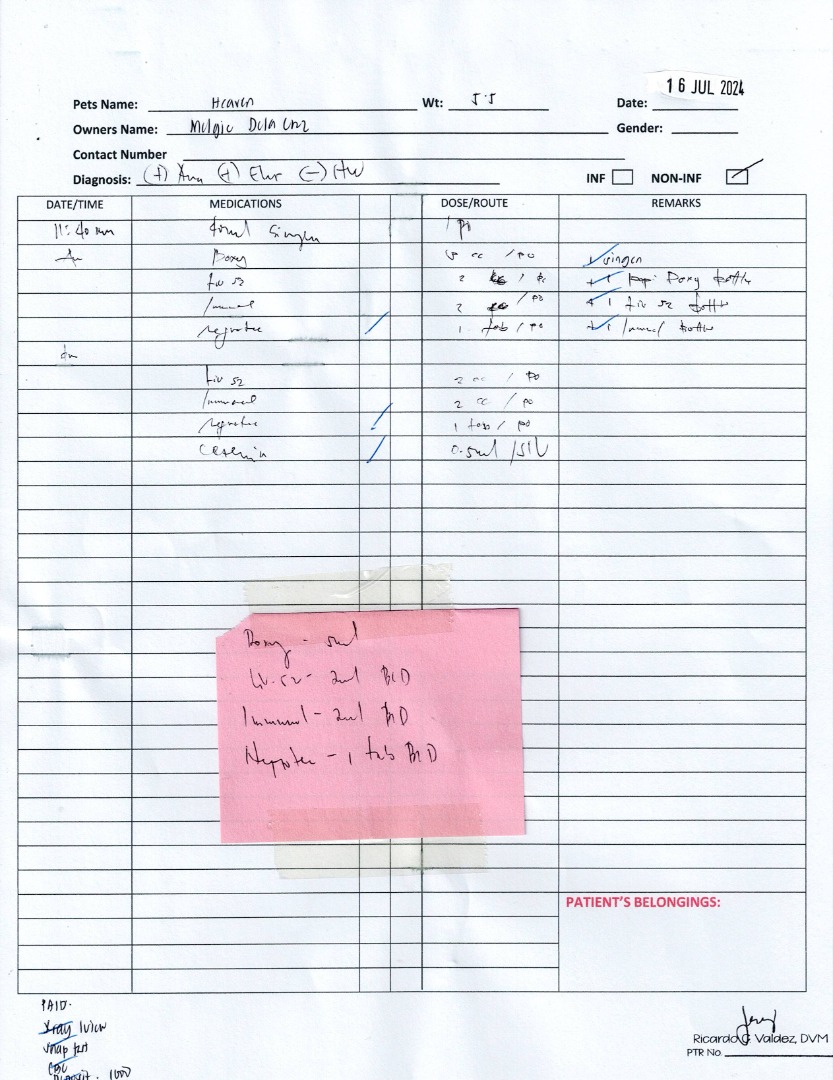 16 JUL 2024
Pets Name: Heaven Wt: 5.5 Date:
Owners Name: Dela Cruz Gender:
Contact Number
Diagnosis: (+) Ana (+) Ehr (-) HW INF NON-INF
DATE/TIME MEDICATIONS DOSE/ROUTE REMARKS
11:40 1 po
Am Doxy 5 cc / po
Liv 52 2 / po + 1 Doxy bottle
Immunol 2 / po + 1 Liv 52 bottle
1 tab / po + 1 Immunol bottle
Liv 52 2 cc / po
Immunol 2 cc / po
1 tab / po
0.5ml /
Doxy - 5ml
Liv-52 - 2ml BID
Immunol - 2ml BID
- 1 tab BID
PATIENT'S BELONGINGS:
PAID.
Xray 1 view
Snap test
CBC
Deposit - 1000
Ricardo G. Valdez, DVM
PTR No.